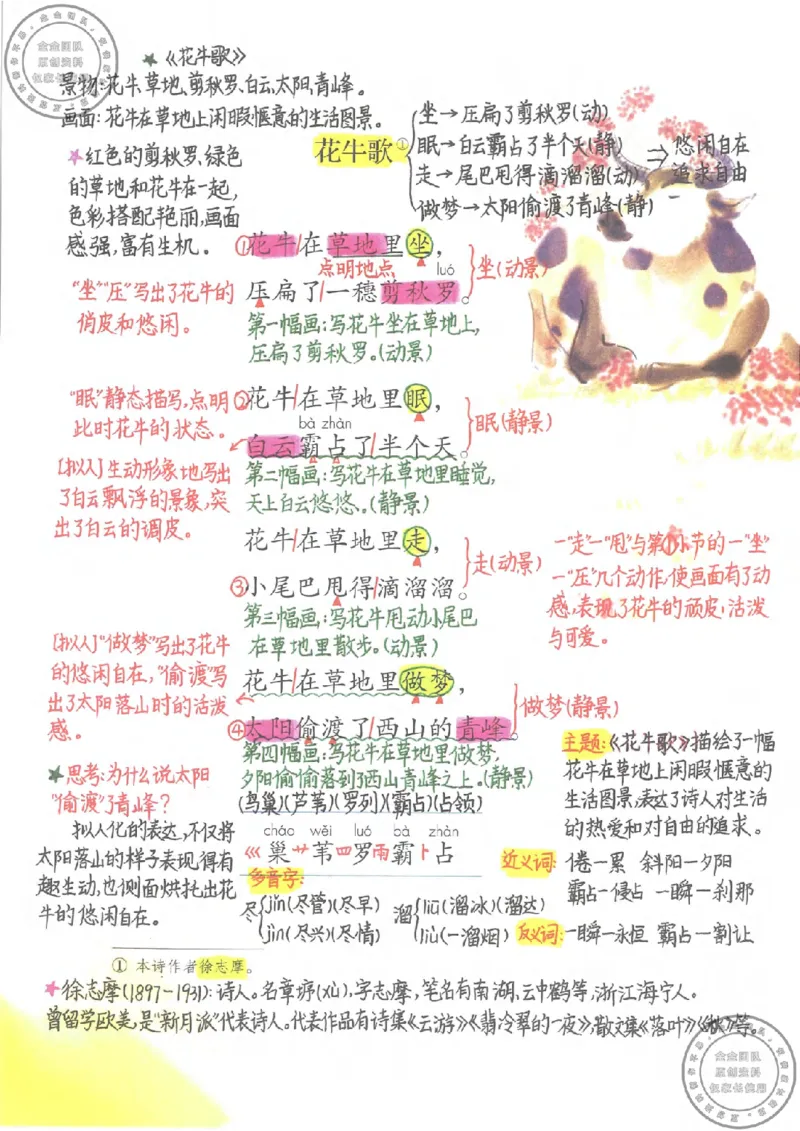 ★《花牛歌》
景物:花牛、草地、剪秋罗、白云、太阳、青峰。
画面:花牛在草地上闲暇惬意的生活图景。
花牛歌①
坐→压扁了剪秋罗(动)
眠→白云霸占了半个天(静)
走→尾巴甩得滴溜溜(动)
做梦→太阳偷渡了青峰(静)
⇒悠闲自在
追求自由
★红色的剪秋罗,绿色
的草地和花牛在一起,
色彩搭配艳丽,画面
感强,富有生机。
①花牛/在草地里坐,
点明地点
luó
压扁了/一穗剪秋罗。
坐(动景)
第一幅画:写花牛坐在草地上,
压扁了剪秋罗。(动景)
"坐""压"写出了花牛的
俏皮和悠闲。
"眠"静态描写,点明
此时花牛的状态。
②花牛/在草地里眠,
bà zhàn
白云霸占了/半个天。
眠(静景)
第二幅画:写花牛在草地里睡觉,
天上白云悠悠。(静景)
[拟人]生动形象地写出
了白云飘浮的景象,突
出了白云的调皮。
花牛/在草地里走,
③小尾巴甩得/滴溜溜。
走(动景)
第三幅画:写花牛甩动小尾巴
在草地里散步。(动景)
一"走"一"甩"与第①小节的一"坐"
一"压"几个动作,使画面有了动
感,表现了花牛的顽皮、活泼
与可爱。
[拟人]"做梦"写出了花牛
的悠闲自在,"偷渡"写
出了太阳落山时的活泼
感。
花牛/在草地里做梦,
④太阳偷渡了/西山的青峰。
做梦(静景)
第四幅画:写花牛在草地里做梦,
夕阳偷偷落到了西山青峰之上。(静景)
主题:《花牛歌》描绘了一幅
花牛在草地上闲暇惬意的
生活图景,表达了诗人对生活
的热爱和对自由的追求。
★思考:为什么说太阳
"偷渡"了青峰?
拟人化的表达,不仅将
太阳落山的样子表现得有
趣生动,也侧面烘托出花
牛的悠闲自在。
(鸟巢)(芦苇)(罗列)(霸占)(占领)
cháo wěi luó bà zhàn
巛巢 艹苇 罒罗 雨霸 卜占
多音字:
尽 jǐn(尽管)(尽早)
jìn(尽兴)(尽情)
溜 liū(溜冰)(溜达)
liù(一溜烟)
近义词:倦—累 斜阳—夕阳
霸占—侵占 一瞬—刹那
反义词:一瞬—永恒 霸占—割让
① 本诗作者徐志摩。
★徐志摩(1897-1931):诗人。名章垿(xù),字志摩,笔名有南湖,云中鹤等,浙江海宁人。
曾留学欧美,是"新月派"代表诗人。代表作品有诗集《云游》《翡冷翠的一夜》,散文集《落叶》《秋》等。